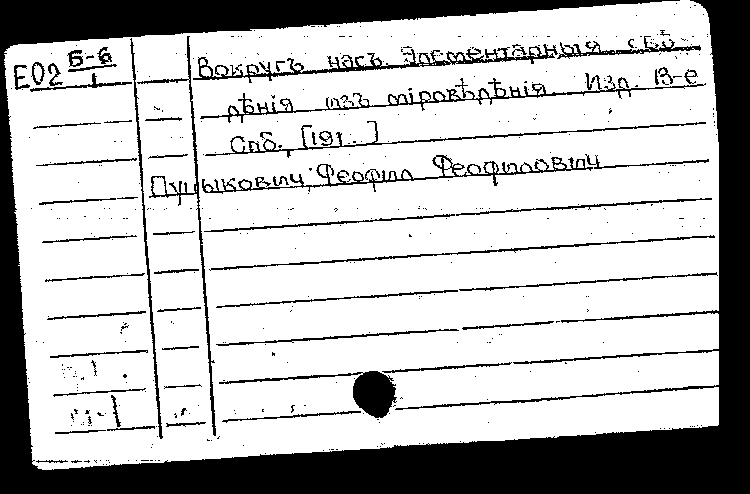 Е02 Б-6/1 Вокругъ насъ. Элементарныя свѣ-
дѣнія изъ міровѣдѣнія. Изд. 13-е
Спб., [191..]
Пуцыковичъ, Феофил Феофилович